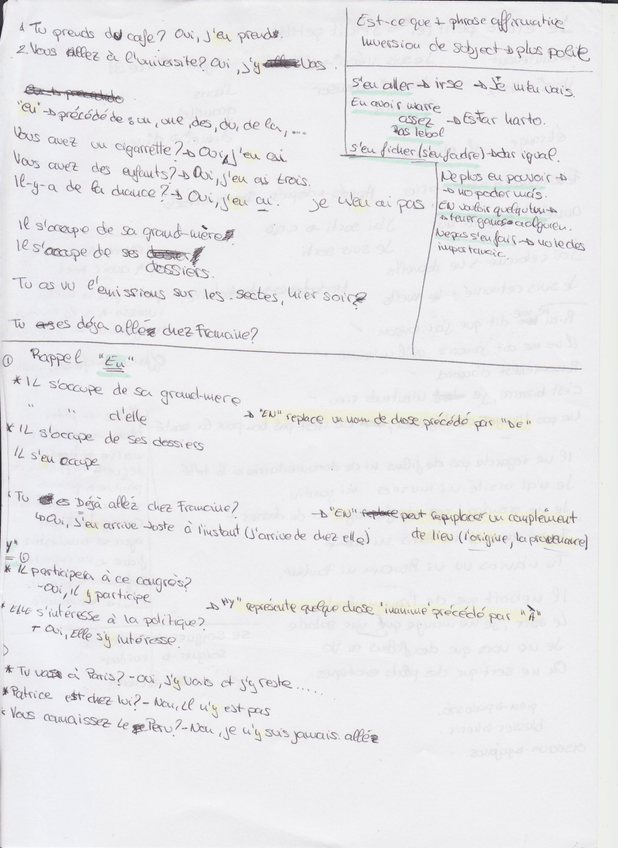 1 Tu prends du café? Oui, j'en prends.
2. Vous allez à l'université? Oui, j'y vais.
"en" → précédé de un, une, des, du, de la, ...
Vous avez un cigarrette? → Oui, j'en ai
Vous avez des enfants? → Oui, j'en ai trois.
Il-y-a de la chance? → Oui, j'en ai. je n'en ai pas
Il s'occupe de sa grand-mère
Il s'occupe de ses
dossiers.
Tu as vu l'emissions sur les sectes, hier soir?
Tu es déja allé chez Francine?
Est-ce que + phrase affirmative
Inversion de subject → plus polite
s'en aller → irse → Je m'en vais.
En avoir marre
assez → Estar harto.
ras lebol
s'en ficher (s'en foutre) → dar igual.
Ne plus en pouvoir →
→ no poder más.
EN vouloir quelqu'un →
Ne pas s'en fair → no le des
importancia.
① Rappel "En"
* IL s'occupe de sa grand-mere
" " d'elle
→ "EN" replace un nom de chose précédé par "DE"
* IL s'occupe de ses dossiers
IL s'en occupe
* Tu es Déjà allez chez Francine?
↳ Oui, j'en arrive juste à l'instant (J'arrive de chez elle)
→ "EN" peut rapiplacer un complement
de lieu (l'origine, la provenance)
Y" ①
* IL participera à ce congrès?
- Oui, IL y participe
→ "Y" représente quelque chose 'inanimé' précédé par "À"
* ELLE s'intéresse à la politique?
+ Oui, Elle s'y intéresse.
* Tu vas à Paris? - Oui, j'y vais et j'y reste.....
* Patrice est chez lui? - Non, IL n'y est pas
* Vous connaissez Le Peru? - Non, je n'y suis jamais allé